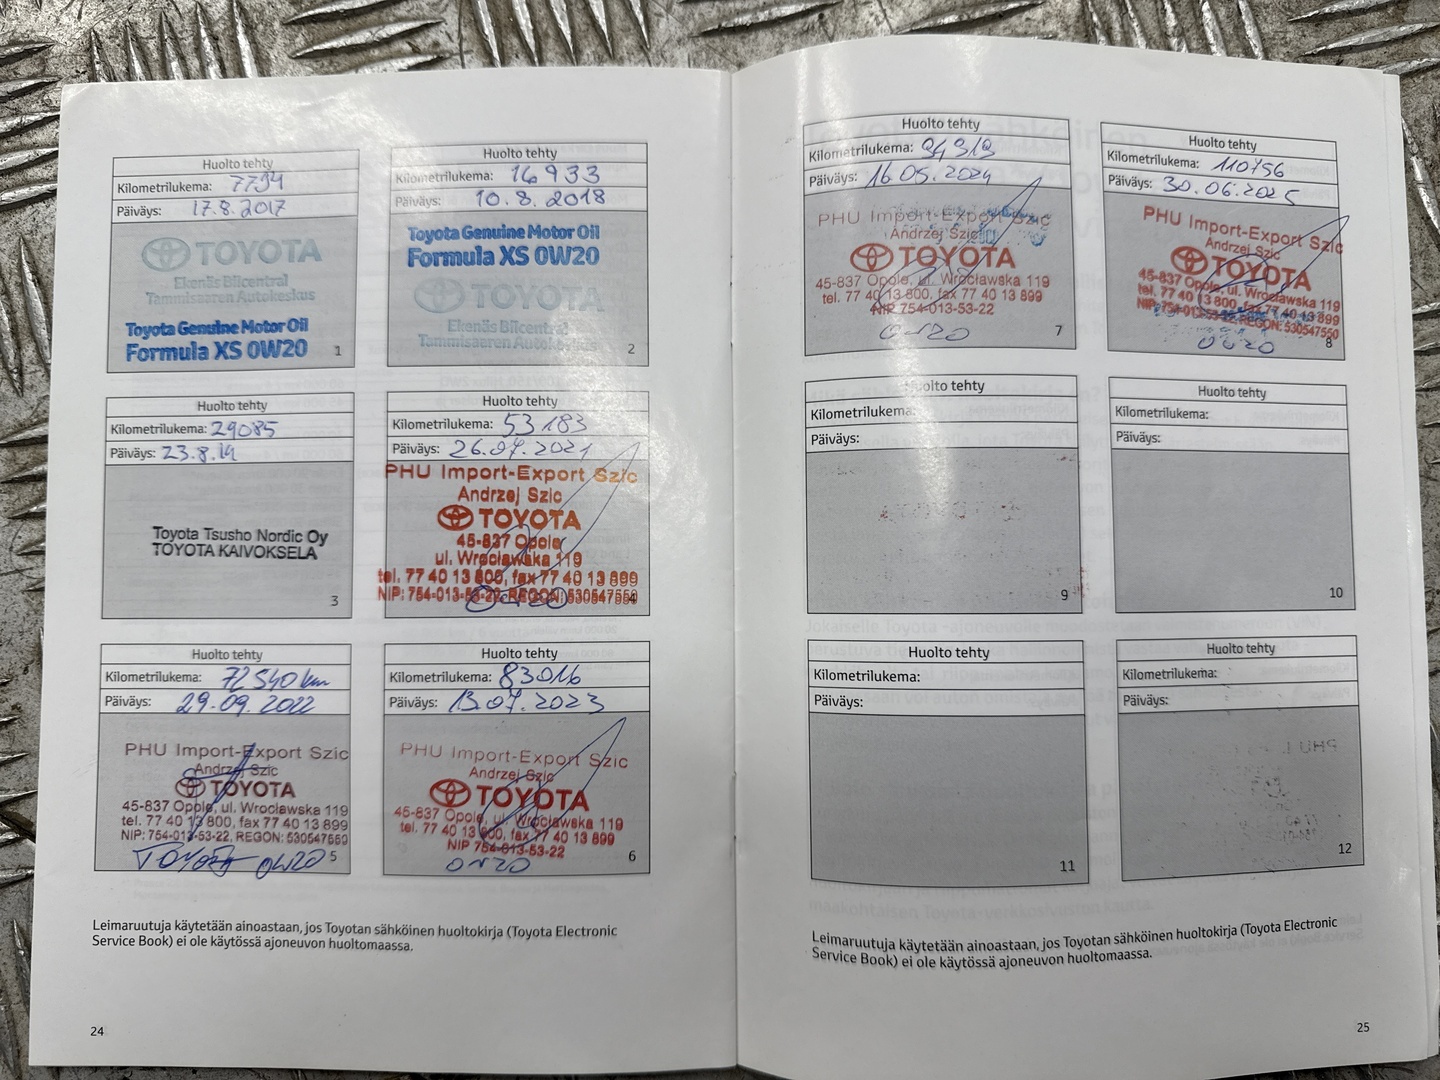 Huolto tehty
Kilometrilukema: 7794
Päiväys: 17.8.2017
TOYOTA
Ekenäs Bilcentral
Tammisaaren Autokeskus
Toyota Genuine Motor Oil
Formula XS 0W20
1
Huolto tehty
Kilometrilukema: 16933
Päiväys: 10.8.2018
Toyota Genuine Motor Oil
Formula XS 0W20
TOYOTA
Ekenäs Bilcentral
Tammisaaren Autokeskus
2
Huolto tehty
Kilometrilukema: 29085
Päiväys: 23.8.19
Toyota Tsusho Nordic Oy
TOYOTA KAIVOKSELA
3
Huolto tehty
Kilometrilukema: 53183
Päiväys: 26.07.2021
PHU Import-Export Szic
Andrzej Szic
TOYOTA
45-837 Opole
ul. Wrocławska 119
tel. 77 40 13 800, fax 77 40 13 899
NIP: 754-013-53-22, REGON: 530547550
0W20
4
Huolto tehty
Kilometrilukema: 72540 km
Päiväys: 29.09.2022
PHU Import-Export Szic
Andrzej Szic
TOYOTA
45-837 Opole, ul. Wrocławska 119
tel. 77 40 13 800, fax 77 40 13 899
NIP: 754-013-53-22, REGON: 530547550
TOYOTA 0W20
5
Huolto tehty
Kilometrilukema: 83016
Päiväys: 13.07.2023
PHU Import-Export Szic
Andrzej Szic
TOYOTA
45-837 Opole, ul. Wrocławska 119
tel. 77 40 13 800, fax 77 40 13 899
NIP 754-013-53-22
0W20
6
Leimaruutuja käytetään ainoastaan, jos Toyotan sähköinen huoltokirja (Toyota Electronic
Service Book) ei ole käytössä ajoneuvon huoltomaassa.
24
Huolto tehty
Kilometrilukema: 94319
Päiväys: 16.05.2024
PHU Import-Export Szic
Andrzej Szic
TOYOTA
45-837 Opole, ul. Wrocławska 119
tel. 77 40 13 800, fax 77 40 13 899
NIP 754-013-53-22
0W20
7
Huolto tehty
Kilometrilukema: 110756
Päiväys: 30.06.2025
PHU Import-Export Szic
Andrzej Szic
TOYOTA
45-837 Opole, ul. Wrocławska 119
tel. 77 40 13 800, fax 77 40 13 899
NIP: 754-013-53-22, REGON: 530547550
0W20
8
Huolto tehty
Kilometrilukema:
Päiväys:
9
Huolto tehty
Kilometrilukema:
Päiväys:
10
Huolto tehty
Kilometrilukema:
Päiväys:
11
Huolto tehty
Kilometrilukema:
Päiväys:
12
Leimaruutuja käytetään ainoastaan, jos Toyotan sähköinen huoltokirja (Toyota Electronic
Service Book) ei ole käytössä ajoneuvon huoltomaassa.
25